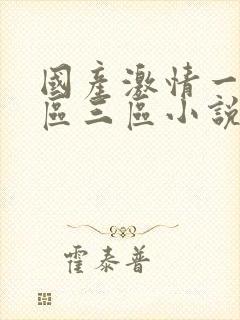 國產激情一
區三區小說
霍泰普